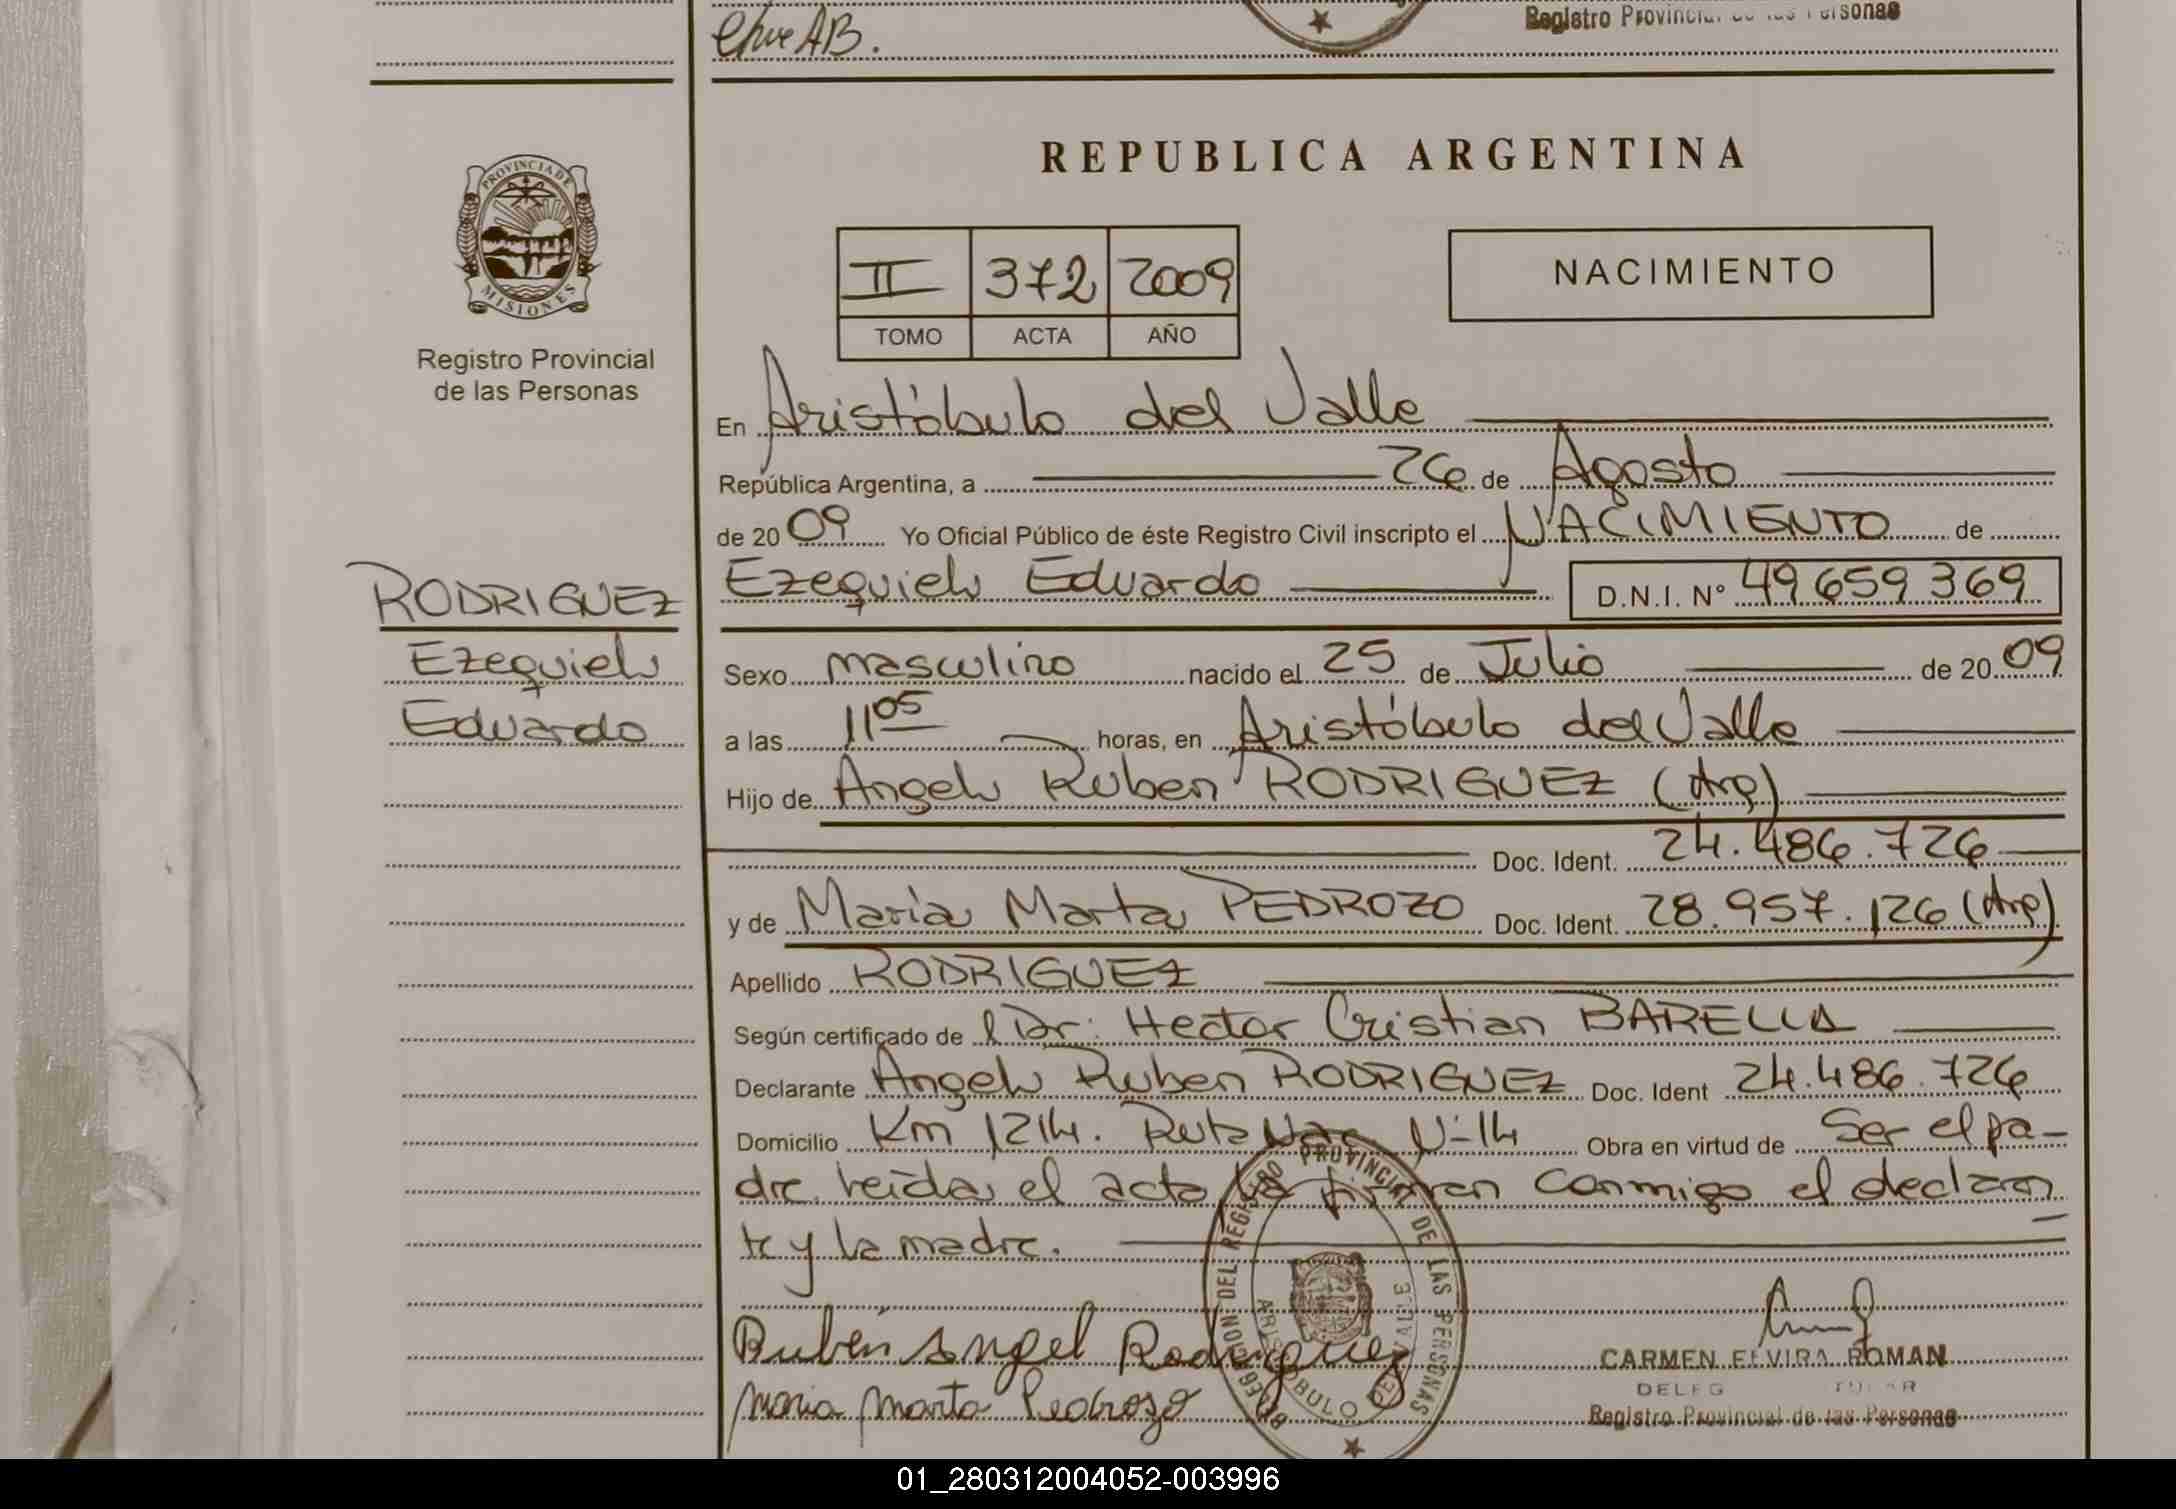 Registro Provincial de las Personas
REPUBLICA ARGENTINA
PROVINCIA DE
MISIONES
Registro Provincial
de las Personas
II 372 2009
TOMO ACTA AÑO
NACIMIENTO
En Aristóbulo del Valle
República Argentina, a 26 de Agosto
de 2009 Yo Oficial Público de éste Registro Civil inscripto el NACIMIENTO de
Ezequiel Eduardo D.N.I. N° 49659369
RODRIGUEZ
Ezequiel
Eduardo
Sexo masculino nacido el 25 de Julio de 2009
a las 11 05 horas, en Aristóbulo del Valle
Hijo de Angel Ruben RODRIGUEZ (Arg)
Doc. Ident. 24.486.726
y de Maria Marta PEDROZO Doc. Ident. 28.957.126 (Arg)
Apellido RODRIGUEZ
Según certificado de l Dr: Hector Cristian BARELLA
Declarante Angel Ruben RODRIGUEZ Doc. Ident 24.486.726
Domicilio Km 1214. Ruta Nac N-14 Obra en virtud de Ser el pa-
dre. leída el acta la firman conmigo el declaran
te y la madre.
DELEGACION DEL REGISTRO PROVINCIAL DE LAS PERSONAS
ARISTOBULO DEL VALLE
Rubén Angel Rodriguez
Maria Marta Pedrozo
CARMEN ELVIRA ROMAN
Registro Provincial de las Personas
01_280312004052-003996